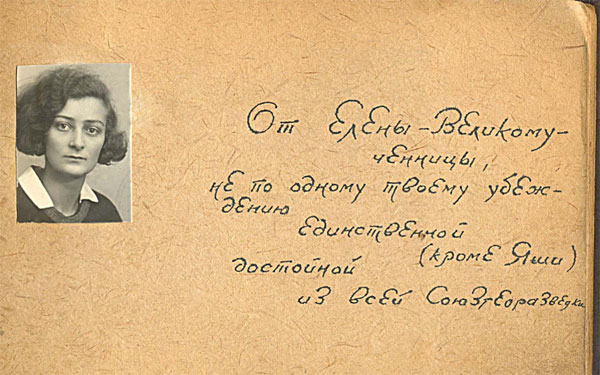 От Елены-Великому-
ченницы,
не по одному твоему убеж-
дению
единственной
(кроме Яши)
достойной
из всей Союзгеоразведки